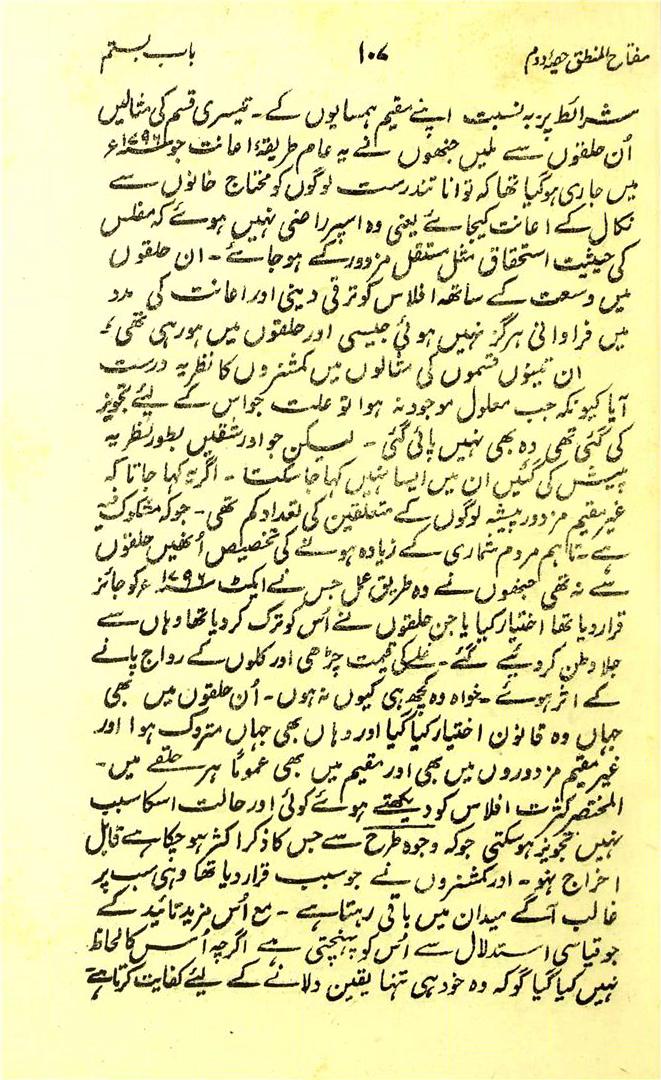 مفتاح المنطق حصۂ دوم ۱۰۷ باب بستم
شرائط پر بہ نسبت اپنے مقیم ہمسایوں کے ۔ تیسری قسم کی مثالیں
اُن حلقوں سے ملیں جنھوں نے یہ عام طریقۂ اعانت جو ۱۷۹۶ء
میں جاری ہوگیا تھا کہ توانا تندرست لوگوں کو محتاج خانوں سے
نکال کے اعانت کیجائے یعنی وہ اسپر راضی نہیں ہوئے کہ مفلس
کی حیثیت استحقاق مثل مستقل مزدور کے ہوجائے ۔ ان حلقوں
میں وسعت کے ساتھ افلاس کو ترقی دینی اور اعانت کی مدد
میں فراوانی ہرگز نہیں ہوئی جیسی اور حلقوں میں ہورہی تھی ۔
ان تینوں قسموں کی مثالوں میں کمشنروں کا نظریہ درست
آیا کیونکہ جب معلول موجود نہ ہوا تو علت جو اس کے لیئے تجویز
کی گئی تھی وہ بھی نہیں پائی گئی ۔ لیکن جو اور شقیں بطور نظریہ
پیش کی گئیں ان میں ایسا نہیں کہا جا سکتا ۔ اگر یہ کہا جاتا کہ
غیر مقیم مزدور پیشہ لوگوں کے متعلقین کی تعداد کم تھی ۔ جو کہ مشکوک فیہ
ہے ۔ تاہم مردم شماری کے زیادہ ہونے کی تخصیص اُنھیں حلقوں
سے نہ تھی جنھوں نے وہ طریق عمل جس نے ایکٹ ۱۷۹۶ء کو جائز
قرار دیا تھا اختیار کیا یا جن حلقوں نے اُس کو ترک کر دیا تھا وہاں سے
جلا وطن کر دیئے گئے ۔ غلے کی قیمت چڑھی اور کلوں کے رواج پانے
کے اثر ہوئے ۔ خواہ وہ کچھ ہی کیوں نہ ہوں ۔ اُن حلقوں میں بھی
جہاں وہ قانون اختیار کیا گیا اور وہاں بھی جہاں متروک ہوا اور
غیر مقیم مزدوروں میں بھی اور مقیم میں بھی عموماً ہر حلقے میں ۔
المختصر کثرت افلاس کو دیکھتے ہوئے کوئی اور حالت اسکا سبب
نہیں تجویز ہوسکتی جو کہ وجوہ طرح سے جس کا ذکر اکثر ہو چکا ہے قابل
اخراج نہو ۔ اور کمشنروں نے جو سبب قرار دیا تھا وہی سب پر
غالب آکے میدان میں باقی رہتا ہے ۔ مع اُس مزید تائید کے
جو قیاسی استدلال سے اُس کو پہنچتی ہے اگرچہ اُس کا لحاظ
نہیں کیا گیا گو کہ وہ خود ہی تنہا یقین دلانے کے لیئے کفایت کرتا ہے